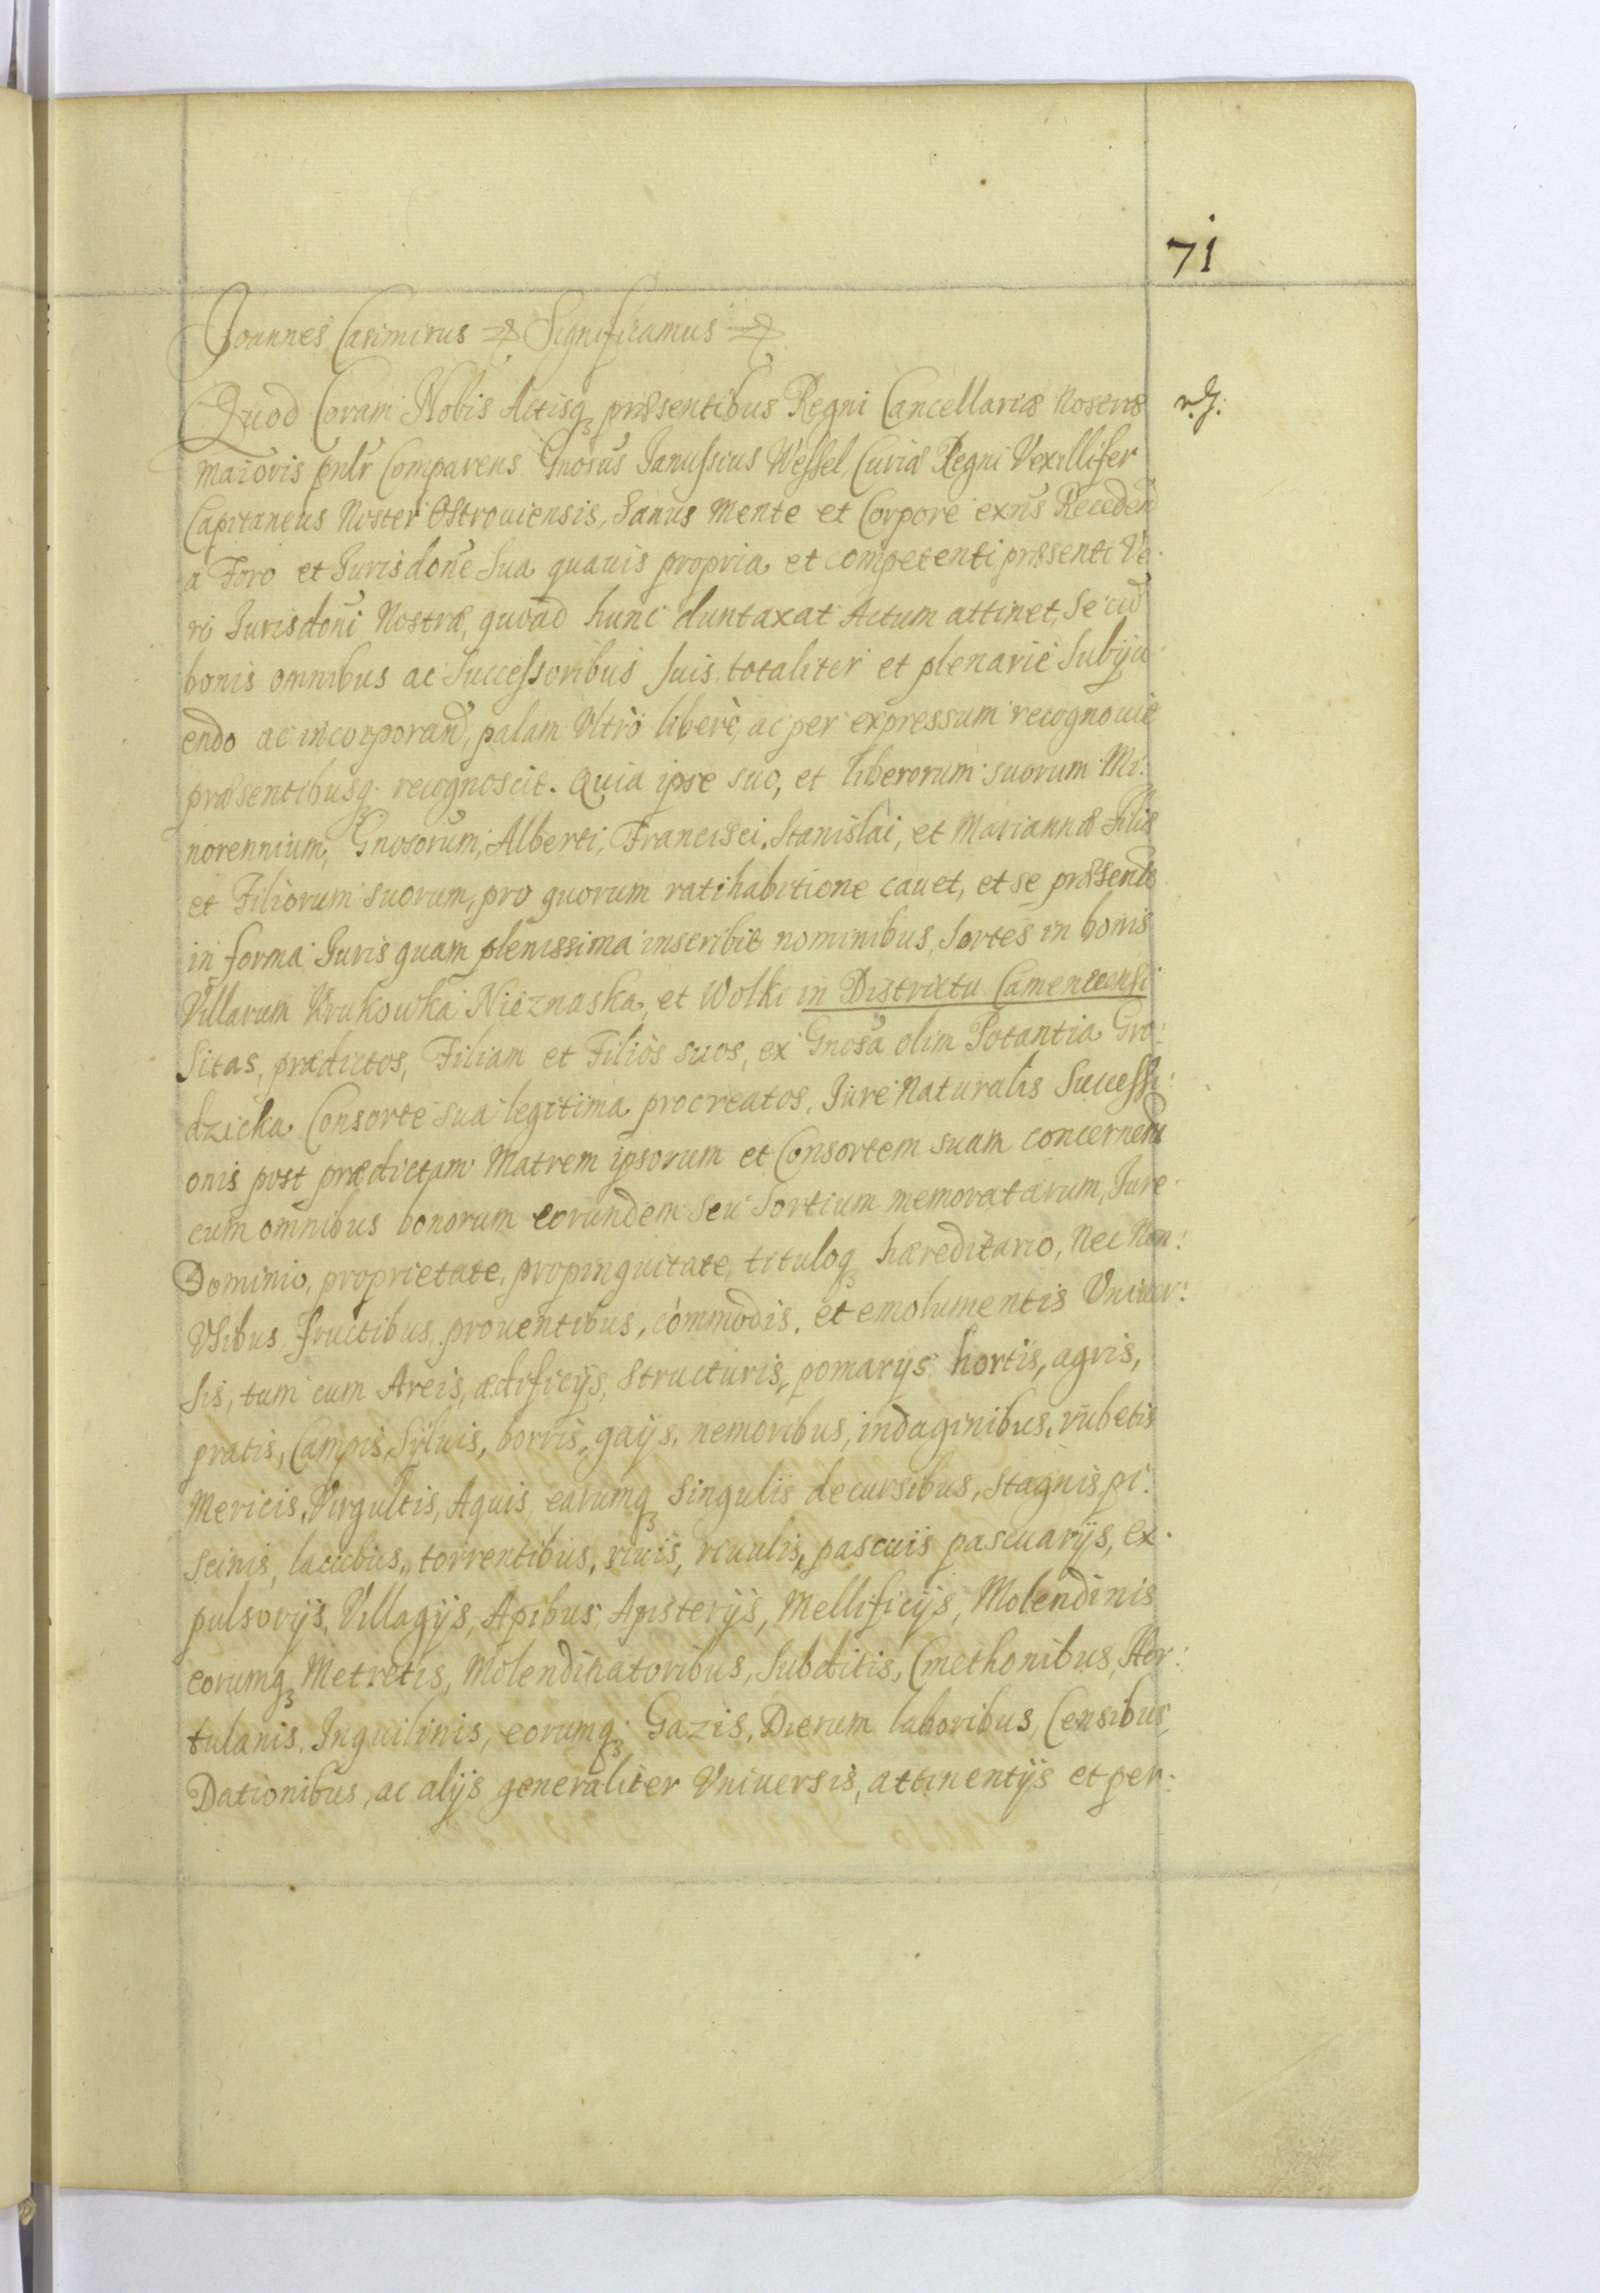 71
Joannes Casimirus Significamus
Quod Coram Nobis Actisq3 præsentibus Regni Cancellariæ Nostræ
maioris pnlr Comparens Gnosus Janussius Wessel Curiæ Regni Vexillifer
Capitaneus Noster Ostroviensis, Sanus Mente et Corpore exns Receden
a Foro et Jurisdone Sua quavis propria et competenti, præsenti Ve:
ro Jurisdoni Nostræ, quoad hunc duntaxat Actum attinet, Se cu
bonis omnibus ac Successoribus suis totaliter et plenarie Subiju
endo ac incorporand, palam Vltrò liberè, ac per expressum recognovit
præsentibusq3 recognoscit. Quia ipse suo, et liberorum suorum Mi:
norennium, Gnosorum, Alberti, Francisci, Stanislai, et Mariannæ Filiæ
et Filiorum suorum, pro quorum ratihabitione cavet, et se præsente
in forma Juris quam plenissima inscribit nominibus, Sortes in bonis
Villarum Krukowka Nieznaska, et Wolki in Districtu Camenecensi
Sitas, prædictos, Filiam et Filiòs suos, ex Gnosa olim Potantia Gro:
dzicka Consorte sua legitima procreatos, Jure Naturalis Successi:
onis post prædictam Matrem ipsorum et Consortem suam concernen
cum omnibus bonorum eorundem seu Sortium memoratarum, Jure
Dominio, proprietate, propinquitate, tituloq3 hæreditario, Nec Non:
Vsibus fructibus, proventibus, còmmodis, et emolumentis Vniver:
sis, tum cum Areis, ædificijs, structuris, pomarijs hortis, agris,
pratis, Campis, Sylvis, borris, gaijs, nemoribus, indaginibus, rubetis
Mericis, Virgultis, Aquis, earumq3 singulis decursibus, Stagnis, pi:
scinis, lacubus, torrentibus, rivis, rivulis, pascuis pascuarijs, ex:
pulsorijs, Villagijs, Apibus, Apisterijs, Mellificijs, Molendinis
eorumq3 Metretis, Molendinatoribus, Subditis, Cmethonibus, Hor:
tulanis, Inquilinis, eorumq3 Gazis, Dierum laboribus, Censibus,
Dationibus, ac alijs generaliter Vniversis, attinentijs et per: